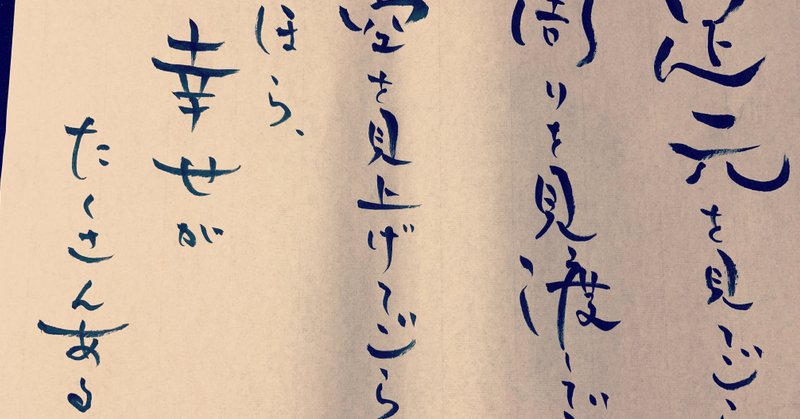 足元を見てごら
周りを見渡して
空を見上げてごら
ほら、
幸せが
たくさんある